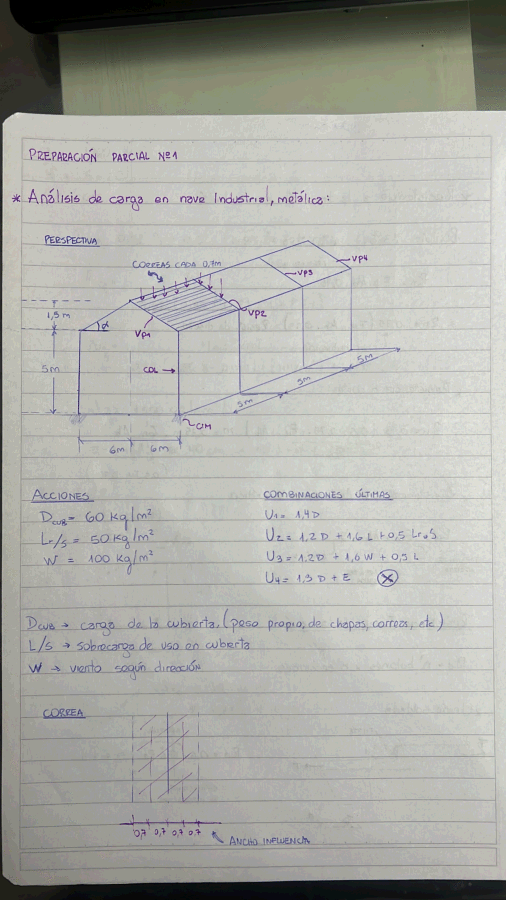 PREPARACIÓN PARCIAL Nº1
* Análisis de carga en nave Industrial, metálica:
PERSPECTIVA
CORREAS CADA 0,7m
VP4
VP3
1,5 m
α
VP1
VP2
5m
COL →
5m
5m
5m
CIM
6m
6m
ACCIONES
COMBINACIONES ÚLTIMAS
D CUB = 60 kg/m²
U1 = 1,4D
Lr/S = 50 kg/m²
U2 = 1,2D + 1,6 L + 0,5 Lr o S
W = 100 kg/m²
U3 = 1,2D + 1,6 W + 0,5 L
U4 = 1,3 D + E
DCUB → carga de la cubierta, (peso propio, de chapas, correas, etc)
L/S → sobrecarga de uso en cubierta
W → viento según dirección
CORREA
0,7 0,7 0,7 0,7
ANCHO INFLUENCIA